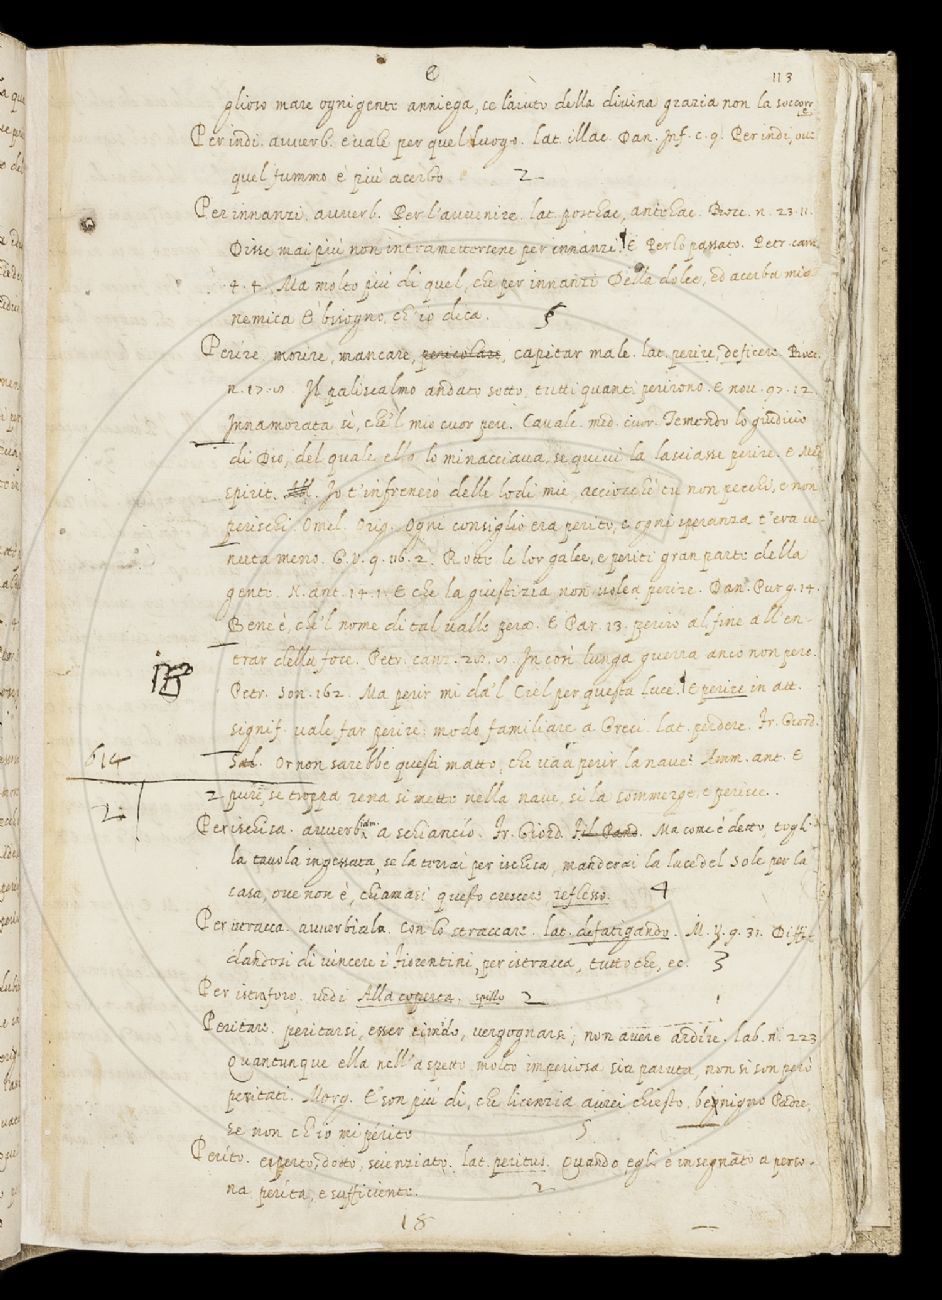 e
113
glioso mare ogni gente anniega, se l'aiuto della divina grazia non la soccorre
Per indi. avverb. e vale per quel luogo. lat. illac. Dan. Inf. c. 9. Per indi, ove
quel fummo è più acerbo 2
Per innanzi. avverb. Per l'avvenire. lat. posthac, antehac. Bocc. n. 23. 11.
Disse mai più non intramettersene per innanzi. E Per lo passato. Petr. canz
4. 4. Ma molto più di quel, che per innanzi Della dolce, ed acerba mia
nemica È bisogno, ch'io dica. 5
Perire, morire, mancare, pericolare, capitar male. lat. perire, deficere. Bocc.
n. 17. 8. Il paliscalmo andato sotto, tutti quanti perirono. E nov. 97. 12.
Innamorata sì, che'l mio cuor pere. Cavalc. med. cuor. Temendo lo giudicio
di Dio, del quale ella lo minacciava, se quivi la lasciasse perire. E Med
spirit. Io t'infrenerò delle lodi mie, acciocchè tu non pecchi, e non
perischi. Omel. Orig. Ogni consiglio era perito, e ogni speranza t'era ve-
nuta meno. G. V. 9. 116. 2. Rotte le lor galee, e periti gran parte della
gente. N. ant. 14. 1. E che la giustizia non volea perire. Dan. Purg. 14.
Bene è, che'l nome di tal valle pera. E Par. 13. perire al fine all'en-
trar della foce. Petr. canz. 28. 8. In così lunga guerra anco non pere.
Petr. Son. 162. Ma perir mi dà'l Ciel per questa luce. E perire in att.
signif. vale far perire: modo familiare a Greci. lat. perdere. Fr. Giord.
614
Sal. Or non sarebbe questi matto, che va a perir la nave? Amm. ant. E
2 pure, se troppa rena si mette nella nave, si la sommerge, e perisce.
2
Perischisa. avverb. a schiancìo. Fr. Giord. Ma come è detto, togli
la tavola ingessata, se la trovai per ischisa, manderai la luce del Sole per la
casa, ove non è, chiamasi questo crescere reflesso. 4
Per istracca. avverbialm. con lo straccare. lat. defatigando. M. V. 9. 31. Diffi
dandosi di vincere i Fiorentini, per istracca, tutto che, ec. 3
Per istraforo. vedi Alla coperta. spillo 2
Peritare. peritarsi, esser timido, vergognarsi, non avere ardire. lab. n. 223
Quantunque ella nell'aspetto molto imperiosa sia paruta, non si son però
peritati. Morg. E son più dì, che licenzia avrei chiesto, benigno Padre,
se non ch'io mi périto 5
Perito. esperto, dotto, scienziato. lat. peritus. Quando egli è insegnato a perso-
na perita, e sufficiente. 2
18